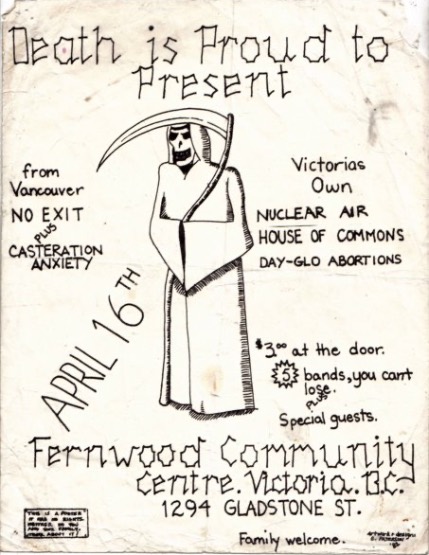 Death is Proud to
Present
from
Vancouver
NO EXIT
PLUS
CASTERATION
ANXIETY
Victorias
Own
NUCLEAR AIR
HOUSE OF COMMONS
DAY-GLO ABORTIONS
APRIL 16TH
$3.00 at the door.
5 bands, you can't
lose.
PLUS
Special guests.
Fernwood Community
Centre. Victoria. B.C.
1294 GLADSTONE ST.
Family welcome.
THIS IS A POSTER
IT HAS NO RIGHTS
artwork & design: